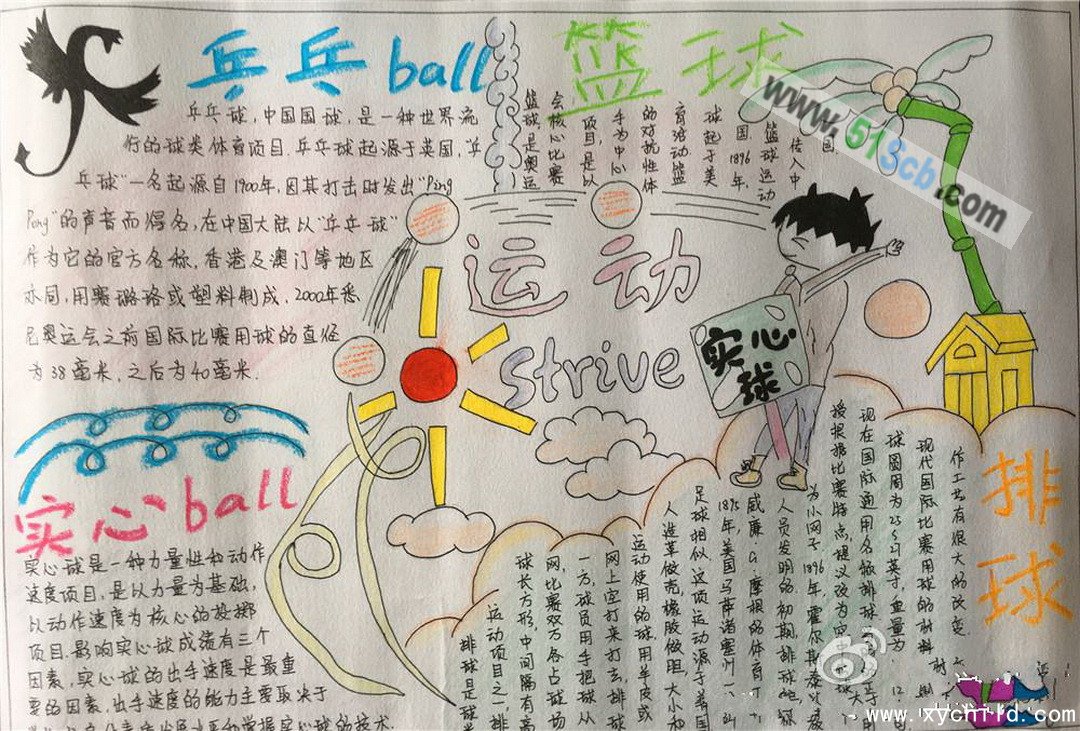 乒乓ball
乒乓球,中国国球,是一种世界流
行的球类体育项目.乒乓球起源于英国,"乒
乓球"一名起源自1900年,因其打击时发出"Ping
Pong"的声音而得名,在中国大陆以"乒乓球"
作为它的官方名称,香港及澳门等地区
亦同,用赛璐珞或塑料制成,2000年悉
尼奥运会之前国际比赛用球的直径
为38毫米,之后为40毫米.
篮球
篮球是奥运
会核心比赛
项目,是以
手为中心
的对抗性体
育活动篮
球起于美
国1896年,
篮球运动
传入中
国.
www.513cb.com
运动
strive
实心
球
实心ball
实心球是一种力量性和动作
速度项目,是以力量为基础,
以动作速度为核心的投掷
项目.影响实心球成绩有三个
因素,实心球的出手速度是最重
要的因素,出手速度的能力主要取决于
掌握实心球的技术.
排球
排球是球
运动项目之一,排
球长方形,中间隔有高
网,比赛双方各占球场
一方,球员用手把球从
网上空打来打去,排球
运动使用的球用羊皮或
人造革做壳,橡胶做胆,大小和
足球相似.这项运动源于美国
1895年,美国马萨诸塞州一叫
威廉G摩根的体育
人员发明的初期,排球
为小网子1896年,霍尔斯
授根据比赛特点,提议改为空
现在国际通用名称排球
球圆周为25-27英寸,重量为 12
现代国际比赛用球的
作工艺有很大的改变.
www.xychild.com